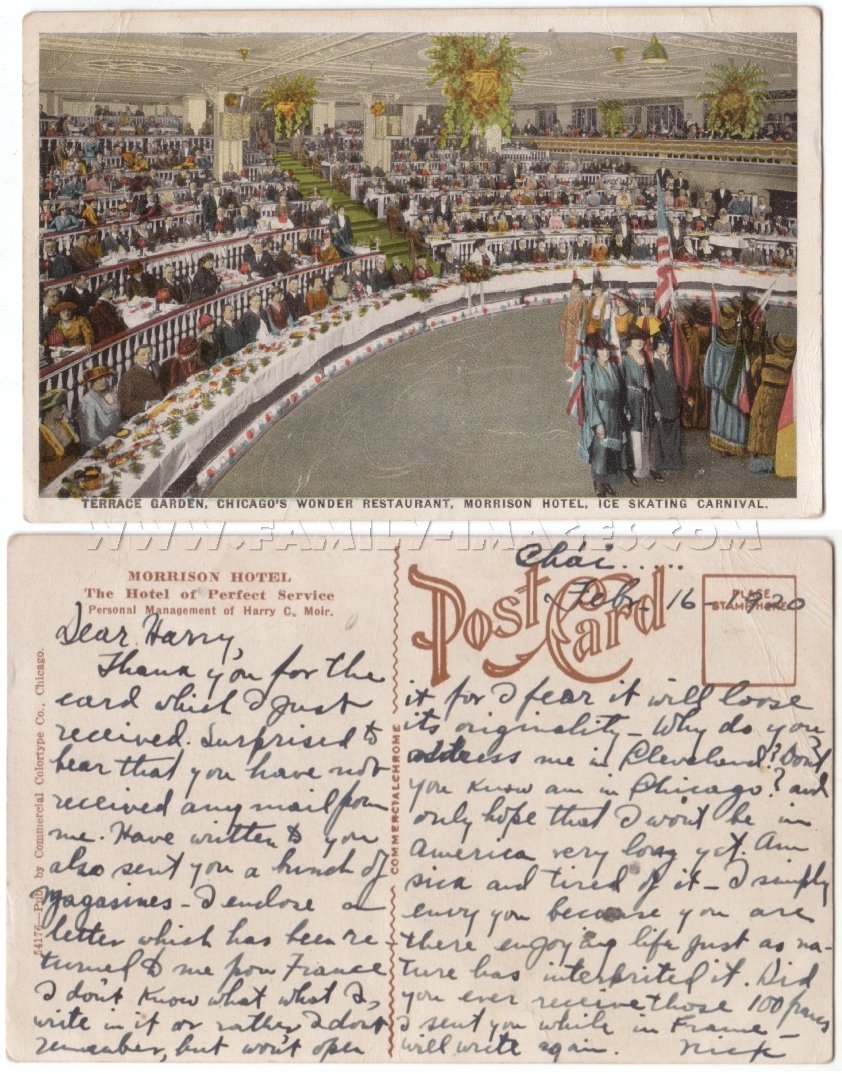 TERRACE GARDEN, CHICAGO'S WONDER RESTAURANT, MORRISON HOTEL, ICE SKATING CARNIVAL.
WWW.FAMILY-IMAGES.COM
MORRISON HOTEL
The Hotel of Perfect Service
Personal Management of Harry C. Moir.
54176—Pub. by Commercial Colortype Co., Chicago.
COMMERCIALCHROME
Post Card
PLACE
STAMP HERE
Chgi......
Feb - 16 - 1920
Dear Harry,
Thank you for the
card which I just
received. Surprised to
hear that you have not
received any mail from
me. Have written to you
also sent you a bunch of
magasines - I enclose a
letter which has been re-
turned to me from France
I don't know what what I
write in it or rather I don't
remember, but won't open
it for I fear it will loose
its originality - Why do you
address me in Cleveland? Don't
you know am in Chicago? and
only hope that I won't be in
America very long yet. Am
sick and tired of it - I simply
envy you because you are
there enjoying life just as na-
ture has interbrited it. Did
you ever receive those 100 francs
I sent you while in France -
will write again. Nick